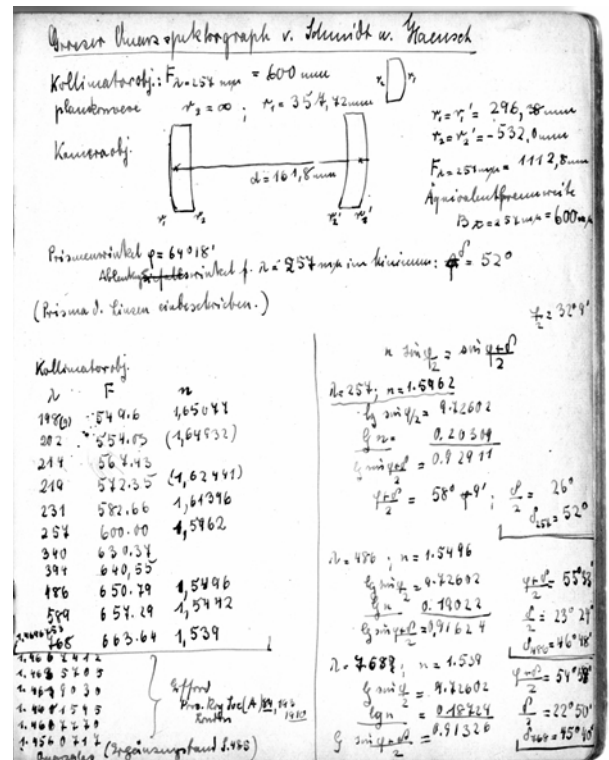 Grosser Quarzspektrograph v. Schmidt u. Haensch
Kollimatorobj.: F λ=257 mμ = 600 mm
plankonvex r₂ = ∞ ; r₁ = 357,72 mm
r₂ r₁
Kameraobj.
d = 161,8 mm
r₁ r₂ r₂' r₁'
r₁ = r₁' = 296,38 mm
r₂ = r₂' = -532,0 mm
F λ=257 mμ = 1112,8 mm
Äquivalentbrennweite
B λ=257 mμ = 600 mm
Prismenwinkel φ = 64°18'
Ablenkungswinkel f. λ = 257 mμ im Minimum: δ = 52°
(Prisma d. Linsen einbeschrieben.)
φ/2 = 32°9'
Kollimatorobj.
λ F n
198(9) 549.6 1,65077
202 554.03 (1,64932)
214 567.43
219 572.35 (1,62441)
231 582.66 1,61396
257 600.00 1,5962
340 630.37
394 640,55
486 650.79 1,5496
589 657.29 1,5442
768 663.64 1,539
1.4667412
1.4685705
1.4679030
1.4601595
1.4607270
1.4560717
Gifford
Pro. Roy Soc (A) 84, 193
London 1910
(Ergänzungsband S. 488)
n sin φ/2 = sin (φ+δ)/2
λ=257; n=1.5962
lg sin φ/2 = 9.72602
lg n = 0.20309
lg sin (φ+δ)/2 = 0.92911
(φ+δ)/2 = 58° 9' ; δ/2 = 26°
δ₂₅₇ = 52°
λ=486 ; n=1.5496
lg sin φ/2 = 9.72602
lg n = 0.19022
lg sin (φ+δ)/2 = 0,91624
(φ+δ)/2 = 55°33'
δ/2 = 23°24'
δ₄₈₆ = 46°48'
λ=768; n=1.539
lg sin φ/2 = 9.72602
lg n = 0.18724
lg sin (φ+δ)/2 = 0.91326
(φ+δ)/2 = 54°58'
δ/2 = 22°50'
δ₇₆₈ = 45°40'